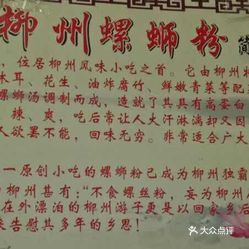 柳州螺蛳粉 简
,位居柳州风味小吃之首。它由柳州
木耳、花生、油炸腐竹、鲜嫩青菜等配
螺蛳汤调制而成,造就了其具有高蛋白
辣、爽,吃后常让人大汗淋漓却又
人欲罢不能,回味无穷。非常适合广大
一原创小吃的螺蛳粉已成为柳州独霸
柳州甚有:"不食螺丝粉,妄为柳州
在外漂泊的柳州游子更是以回家乡后
来告慰其多年的乡思!
大众点评